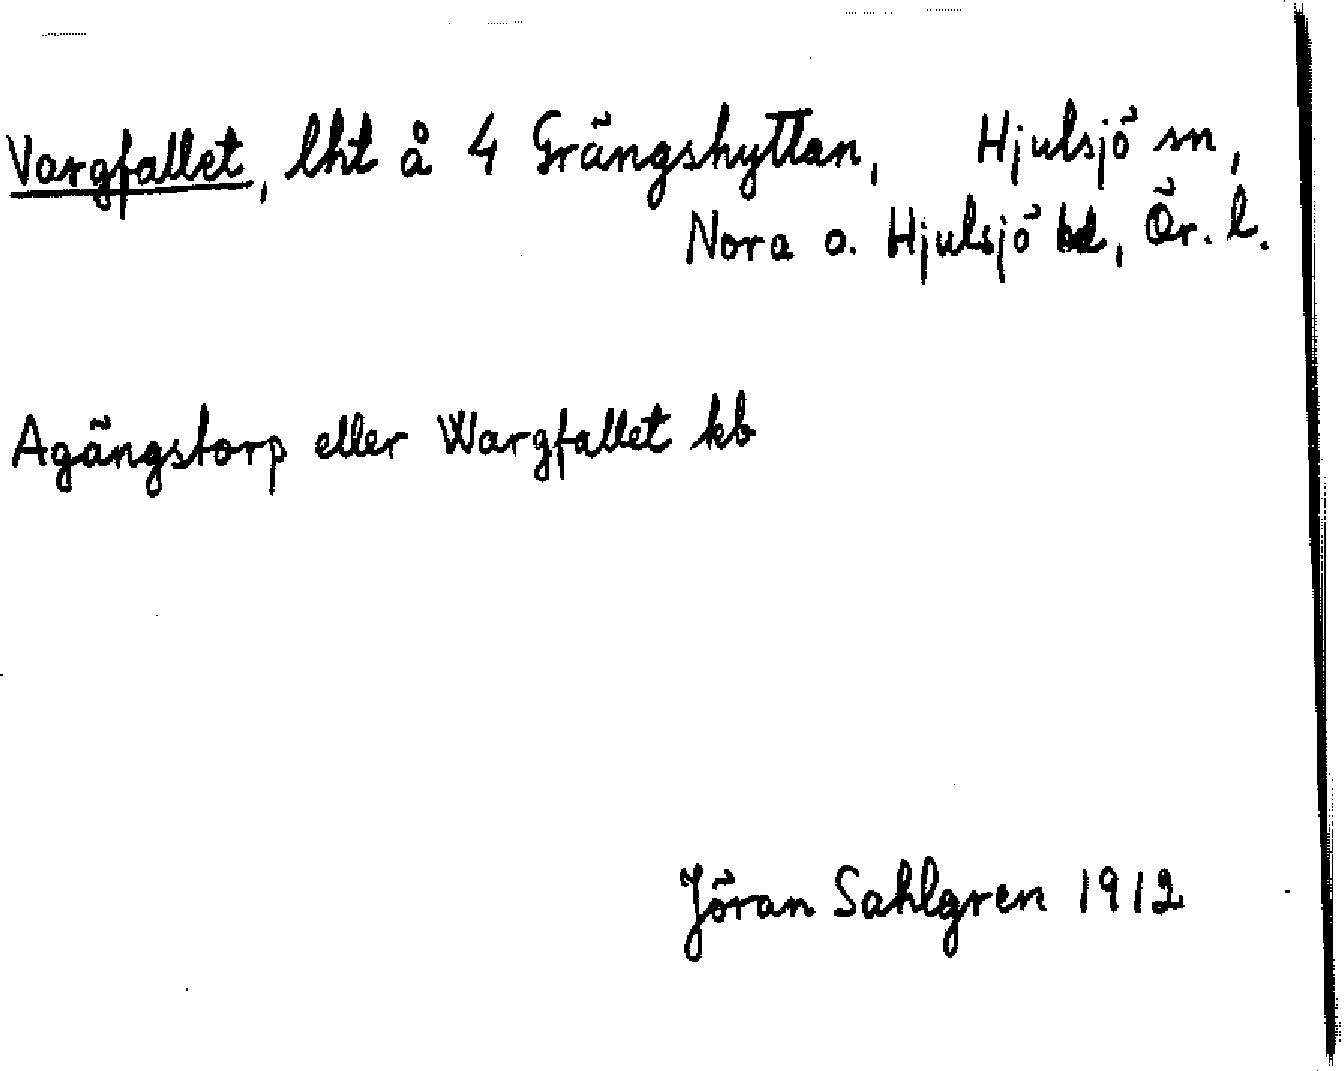 Vargfallet, lht å 4 Grängshyttan, Hjulsjö sn,
Nora o. Hjulsjö bd, Ör. l.
Agängstorp eller Wargfallet kb
Jöran Sahlgren 1912